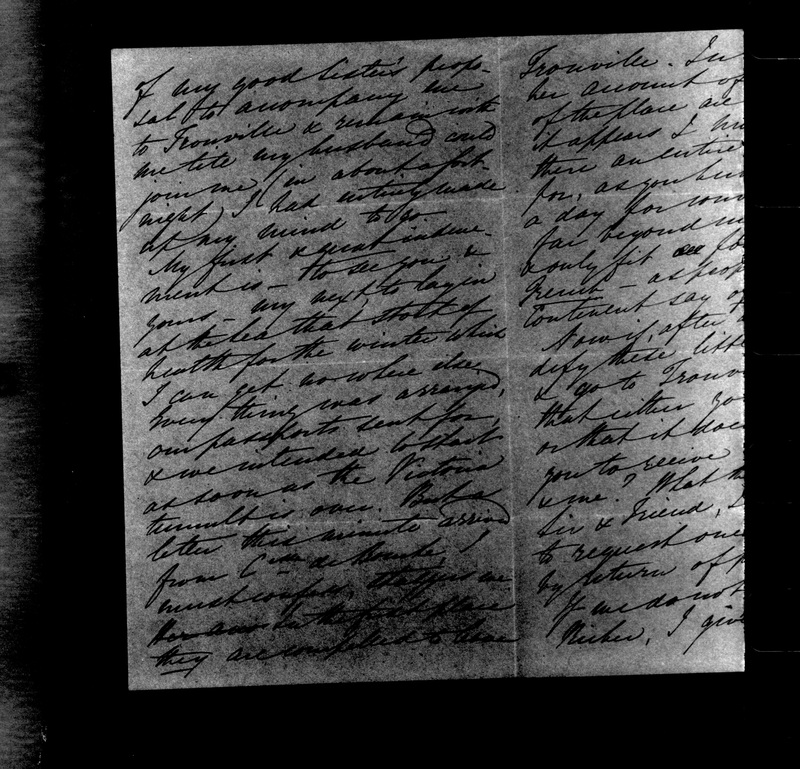 of my good sister's propo-
sal to accompany me
to Trouville & remain with
me till my husband could
join me (in about a fort-
night) I had entirely made
up my mind to go
My first & great induce-
ment is – to see you &
yours – my next, to lay in
at the sea that stock of
health for the winter which
I can get no where else
Every thing was arranged,
our passports sent for
& we intended to start
as soon as the Victoria
tumult is over. But a
letter this minute arrived
from Ctesse de I
must confess, staggers me
in the first place
they are compelled to leave
Trouville. In
her account of
of the place are
it appears I
there an entire
for, as you
a day for
far beyond
& only fit for
French – as peop
Continent say of
Now if, after
defy these little
& go to Trouv
that either yo
or that it does
you to receive
& me? What
Sir & Friend,
to request one
by return of p
If we do not
Richer, I give